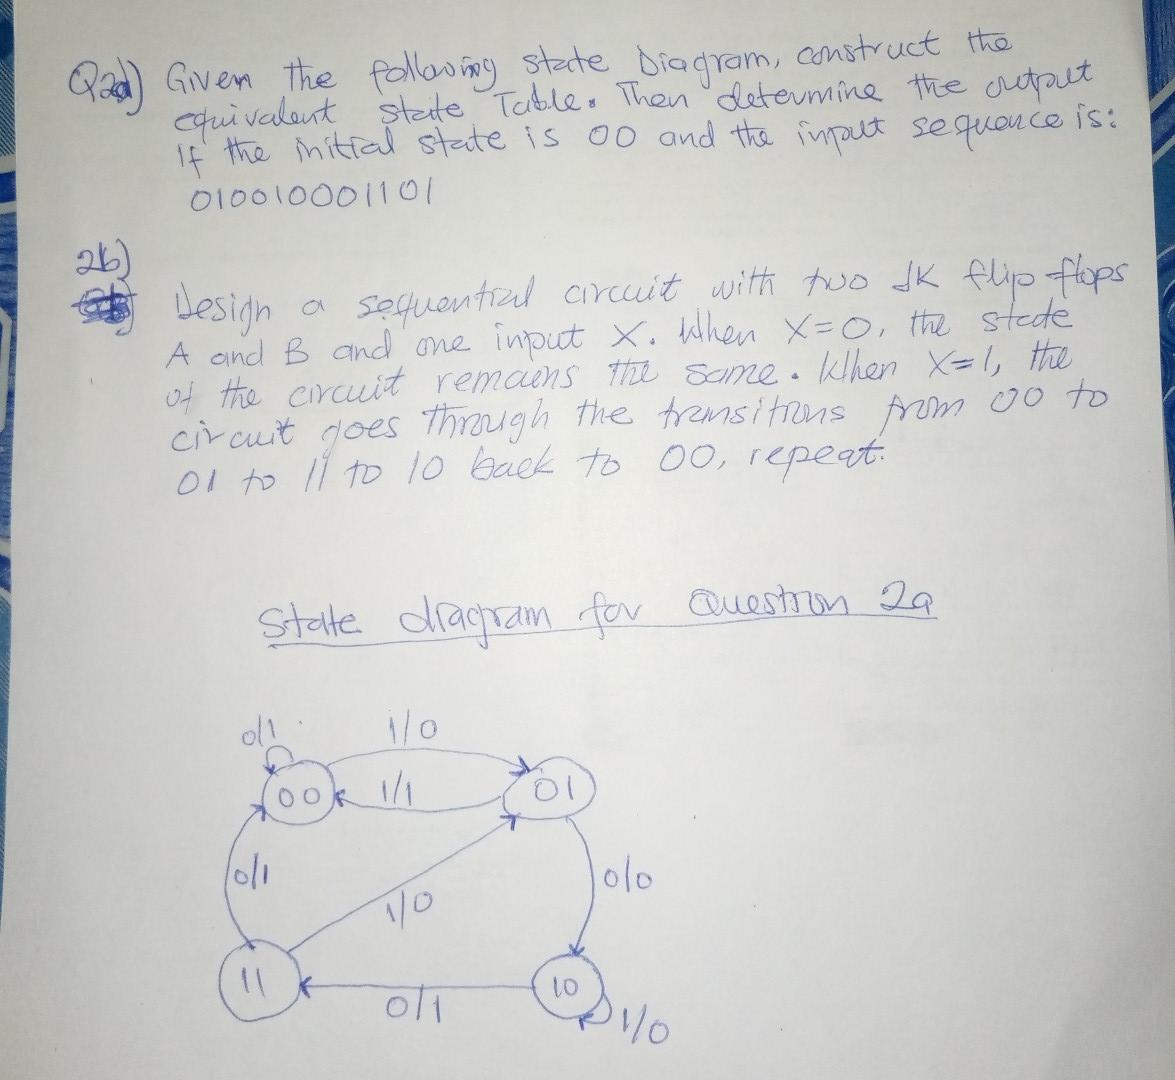 Q2a) Given the following state Diagram, construct the
equivalent State Table. Then determine the output
if the initial state is 00 and the input sequence is:
010010001101
2b)
Design a sequential circuit with two JK flip flops
A and B and one input X. When X=0, the state
of the circuit remains the same. When X=1, the
circuit goes through the transitions from 00 to
01 to 11 to 10 back to 00, repeat.
State diagram for Question 2a
0/1
1/0
00
1/1
01
0/1
1/0
0/0
11
0/1
10
1/0